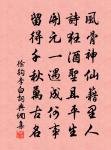 風骨神仙籍裏人
詩狂酒聖且平生
開元一遇成何事
留得千秋萬古名
徐鈞李白詞典網集